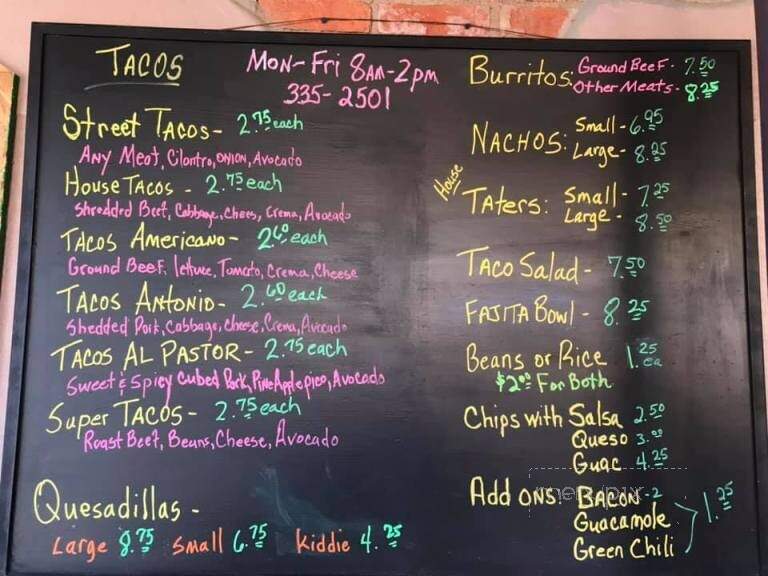 TACOS
Mon-Fri 8AM-2pm
335-2501
Street TACOS- 2.75 each
Any Meat, Cilantro, ONION, Avocado
House TACOS - 2.75 each
Shredded Beef, Cabbage, Chees, Crema, Avocado
TACOS Americano- 2.60 each
Ground Beef, lettuce, Tomato, Crema, Cheese
TACOS ANTONIO- 2.60 each
Shedded Pork, Cabbage, Cheese, Crema, Avocado
TACOS AL PASTOR- 2.75 each
Sweet & Spicy Cubed Pork, PineApple pico, Avocado
Super TACOS- 2.75 each
Roast Beef, Beans, Cheese, Avocado
Quesadillas -
Large 8.75 Small 6.75 Kiddie 4.25
Burritos: Ground Beef- 7.50
Other Meats- 8.25
NACHOS: Small-6.95
Large- 8.25
House
Taters: Small- 7.25
Large- 8.50
Taco Salad- 7.50
FAJITA Bowl- 8.25
Beans or Rice 1.25 ea
$2.00 For Both
Chips with Salsa 2.50
Queso 3.00
Guac 4.25
Add ons: BACON-2
Guacamole 1.25
Green Chili
menupix